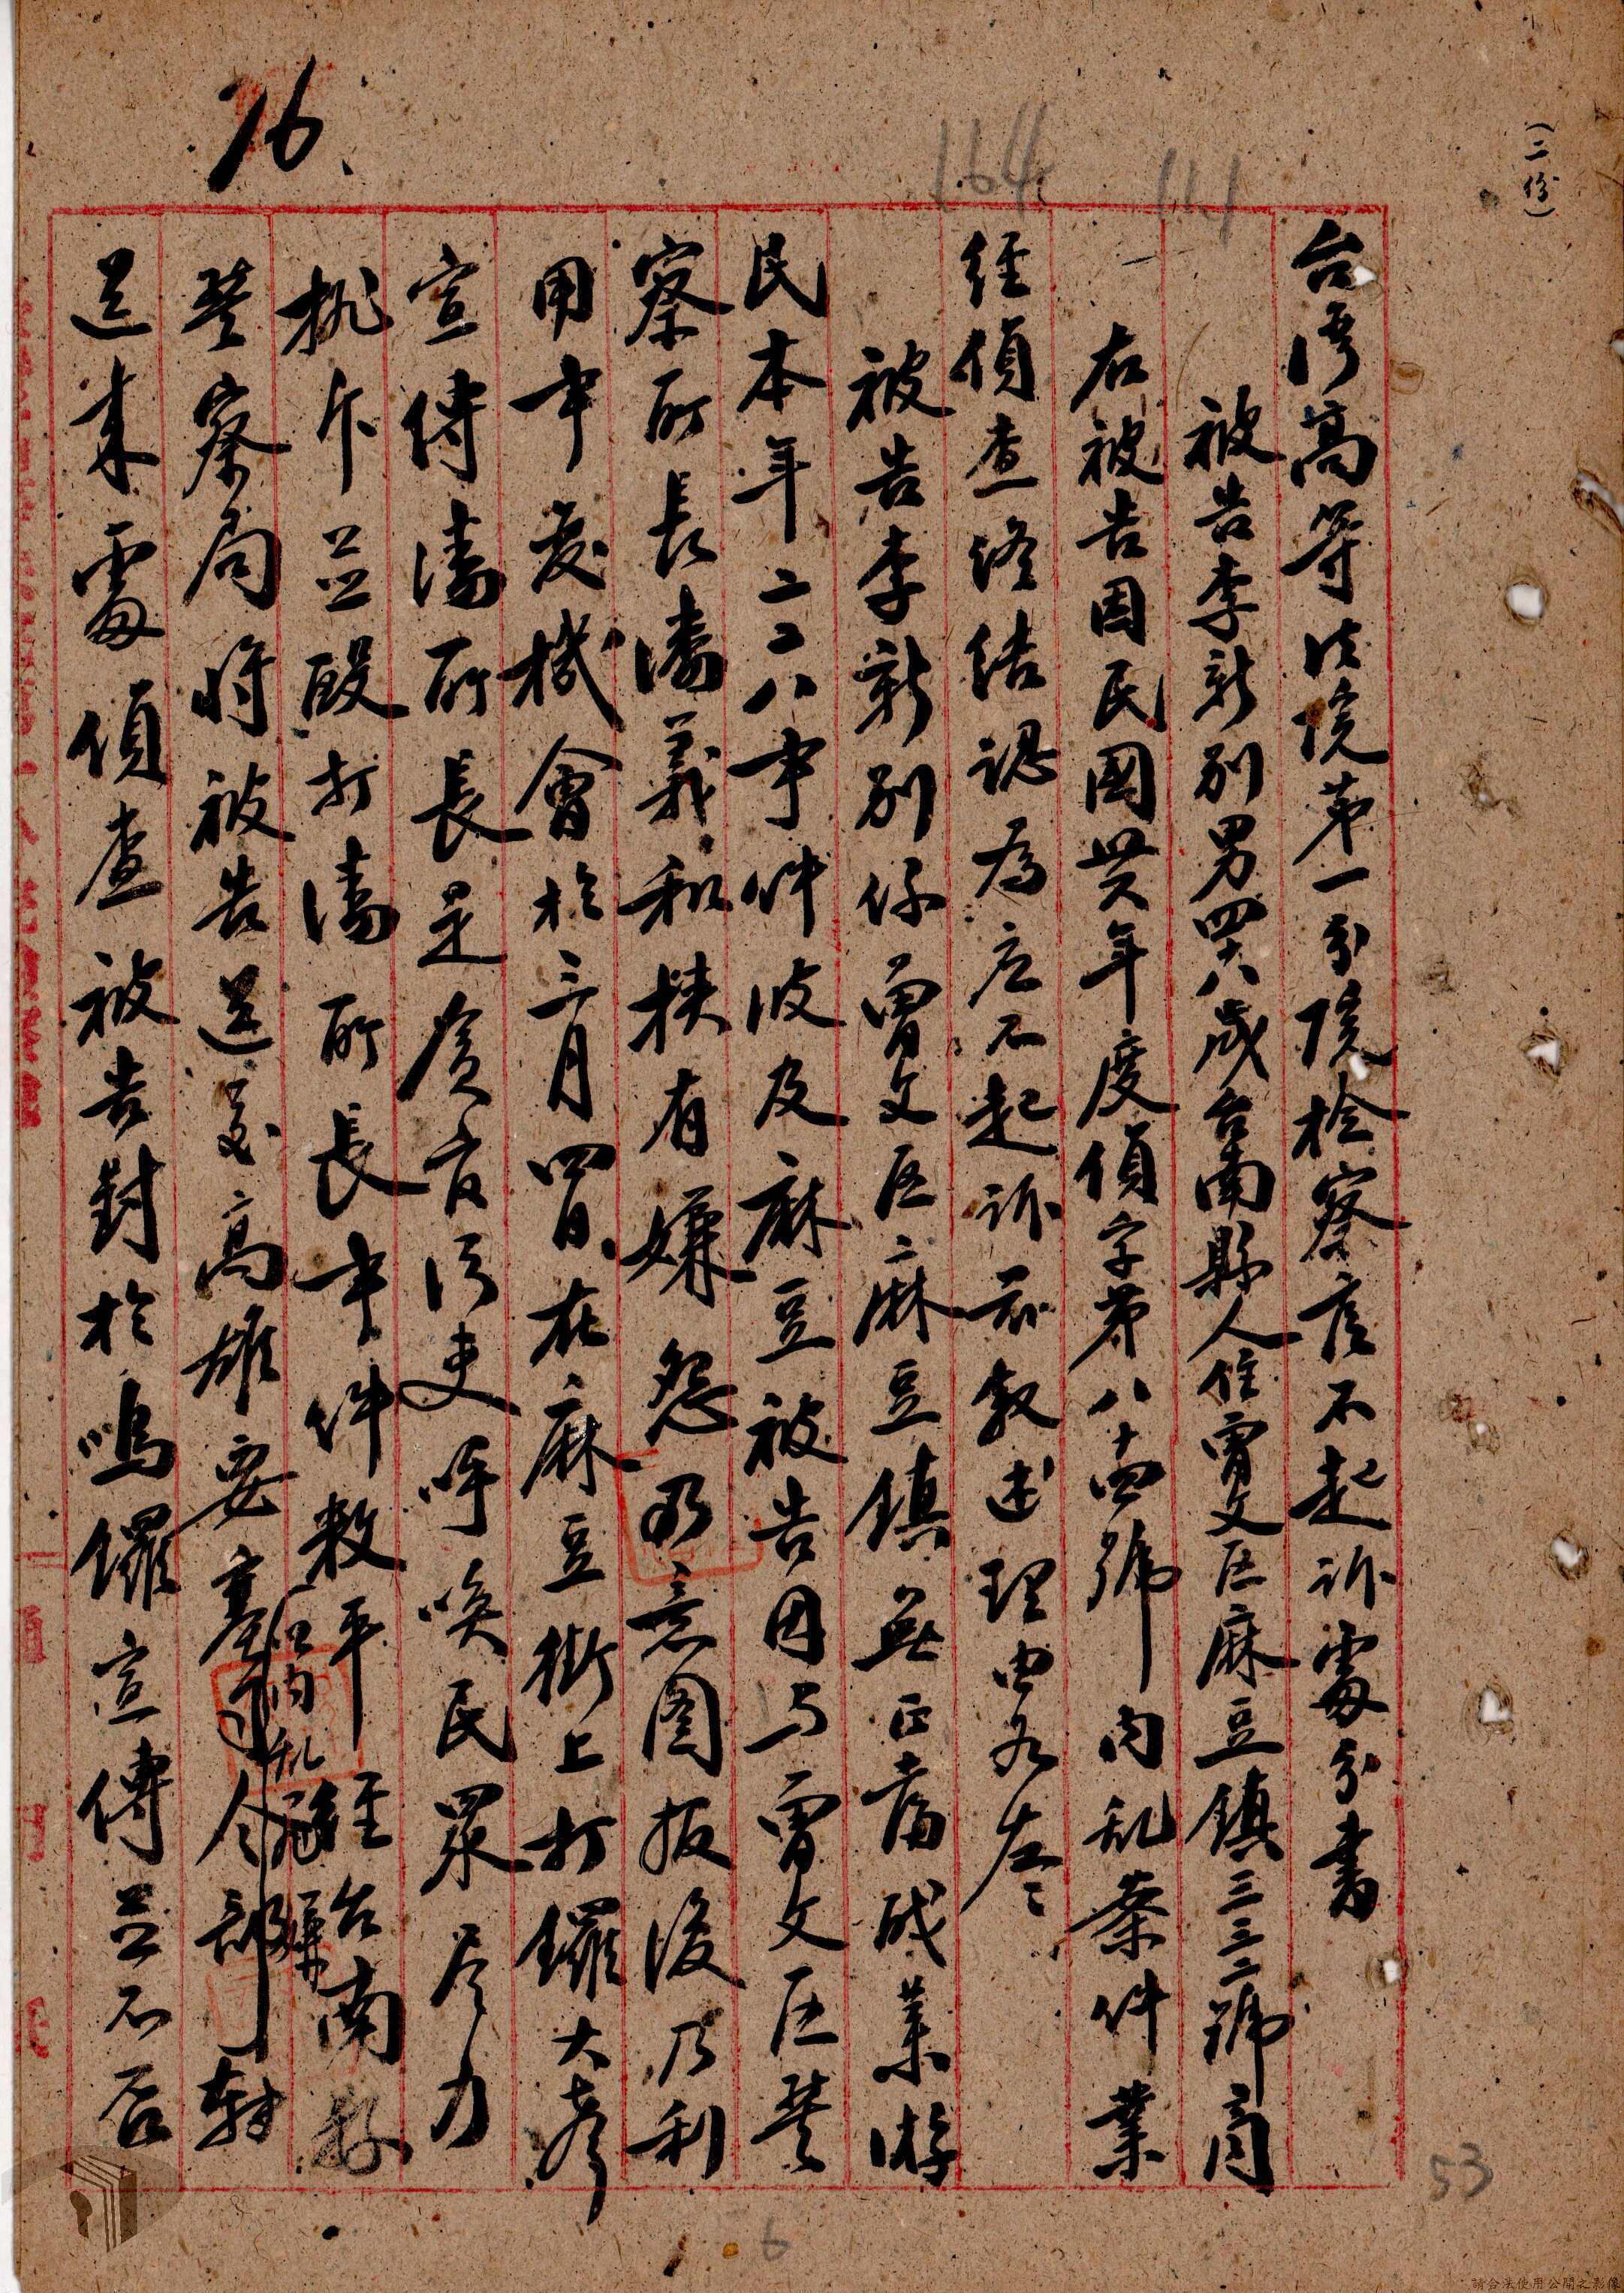 (二份)
164
111
76
台湾高等法院第一分院檢察官不起訴處分書
被告李新別男四十八歲台南縣人住曾文区麻豆鎮三三二號商
右被告因民國卅六年度偵字第八十四號內乱案件業
經偵查終結認為应不起訴茲敘述理由如左
被告李新別係曾文区麻豆鎮無正當成業游
民本年二二八事件波及麻豆被告因与曾文区警
察所長潘義和挾有嫌怨乃意图报復乃利
用事变機會於三月四日在麻豆街上打鑼大彥
宣傳潘所長是贪官污吏呼喚民眾尽力
排斥並毆打潘所長事件敉平經台南縣
警察局將被告送交高雄要塞司令部轉
以內乱罪嫌
送來處偵查被告對於鳴鑼宣傳並不否
53
6
請合法使用公開之影像